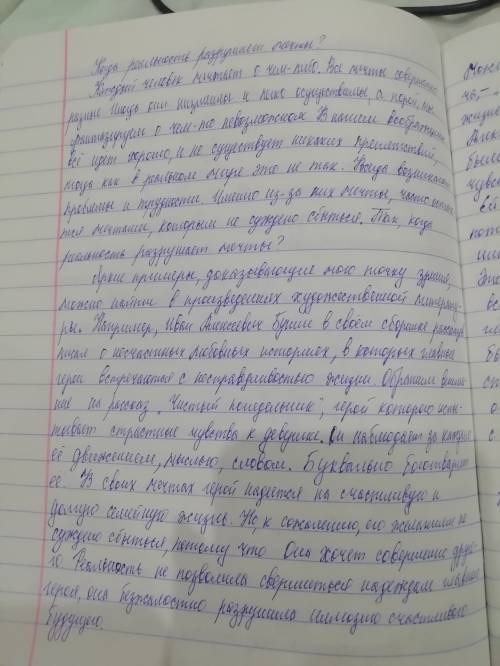 Когда реальность разрушает мечты?
Каждый человек мечтает о чем-либо. Все мечты совершенно
разные иногда они низменны и легко осуществимы, а порой, мы
фантазируем о чем-то невозможном. В нашем воображении
всё идет хорошо, и не существует никаких препятствий,
тогда как в реальном мире это не так. Всегда возникают
проблемы и трудности. Именно из-за них мечты, часто остаю
тся мечтами, которым не суждено сбыться. Так, когда
реальность разрушает мечты?
Яркие примеры, доказывающие мою точку зрения,
можно найти в произведениях художественной литерату-
ры. Например, Иван Алексеевич Бунин в своём сборнике рассказов
писал о несчастных любовных историях, в которых главные
герои встречаются с несправедливостью жизни. Обратим внима-
ние на рассказ "Чистый понедельник", герой которого испы-
тывает страстные чувства к девушке. Он наблюдает за каждым
её движением, мыслью, словом. Буквально боготворит
ее. В своих мечтах герой надеется на счастливую и
долгую семейную жизнь. Но, к сожалению, его желаниям не
суждено сбыться, потому что Она хочет совершенно друго-
го. Реальность не позволила свершиться надеждам главного
героя, она безжалостно разрушила иллюзию счастливого
будущего.